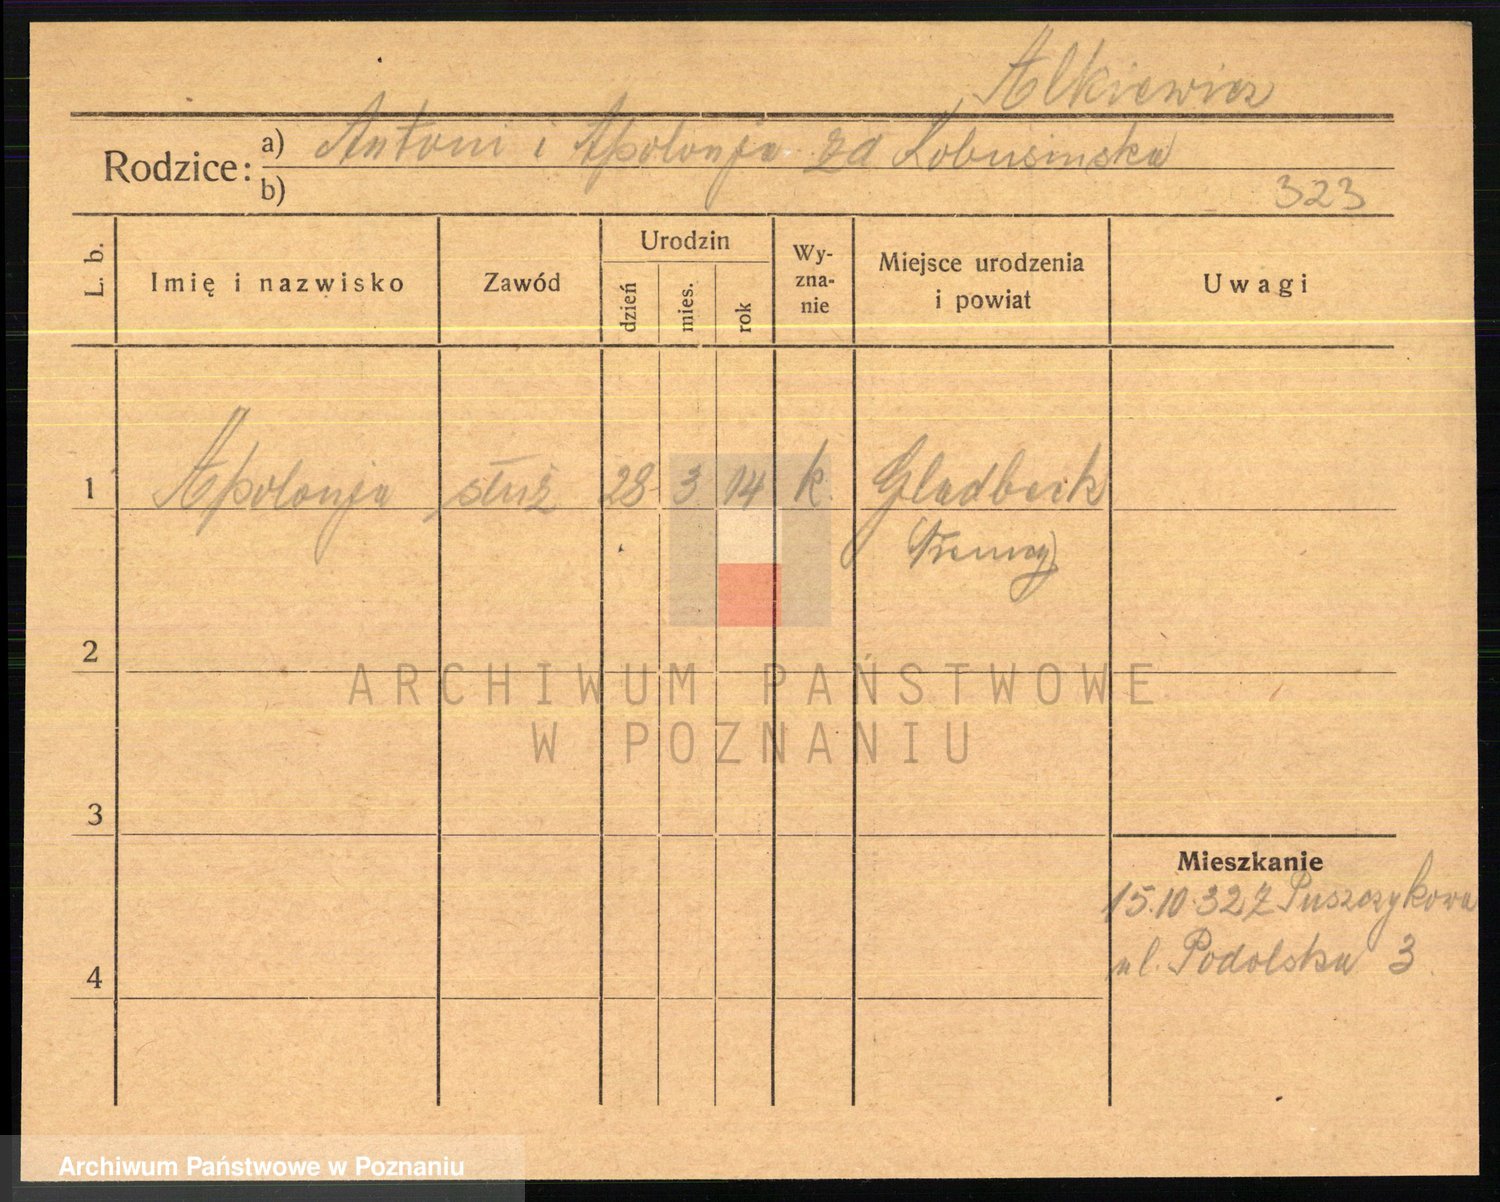 Alkiewicz
Rodzice: a) Antoni i Apolonja zd Łobusinska
b)
323
L. b.
Imię i nazwisko
Zawód
Urodzin
dzień
mies.
rok
Wy-
zna-
nie
Miejsce urodzenia
i powiat
Uwagi
1 Apolonja służ 28 3 14 k. Gladbeck
(Niemcy)
2
ARCHIWUM PAŃSTWOWE
W POZNANIU
3
Mieszkanie
15.10.32 Z Puszczykowa
ul. Podolska 3
4
Archiwum Państwowe w Poznaniu